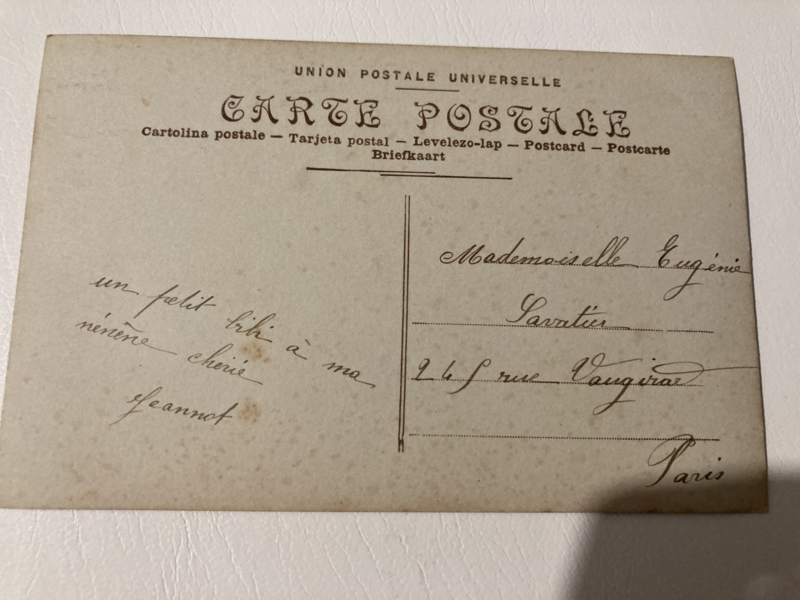 UNION POSTALE UNIVERSELLE
CARTE POSTALE
Cartolina postale — Tarjeta postal — Levelezo-lap — Postcard — Postcarte
Briefkaart
un petit bibi à ma
nénène chérie
Jeannot
Mademoiselle Eugénie
Savatier
245 rue Vaugirard
Paris